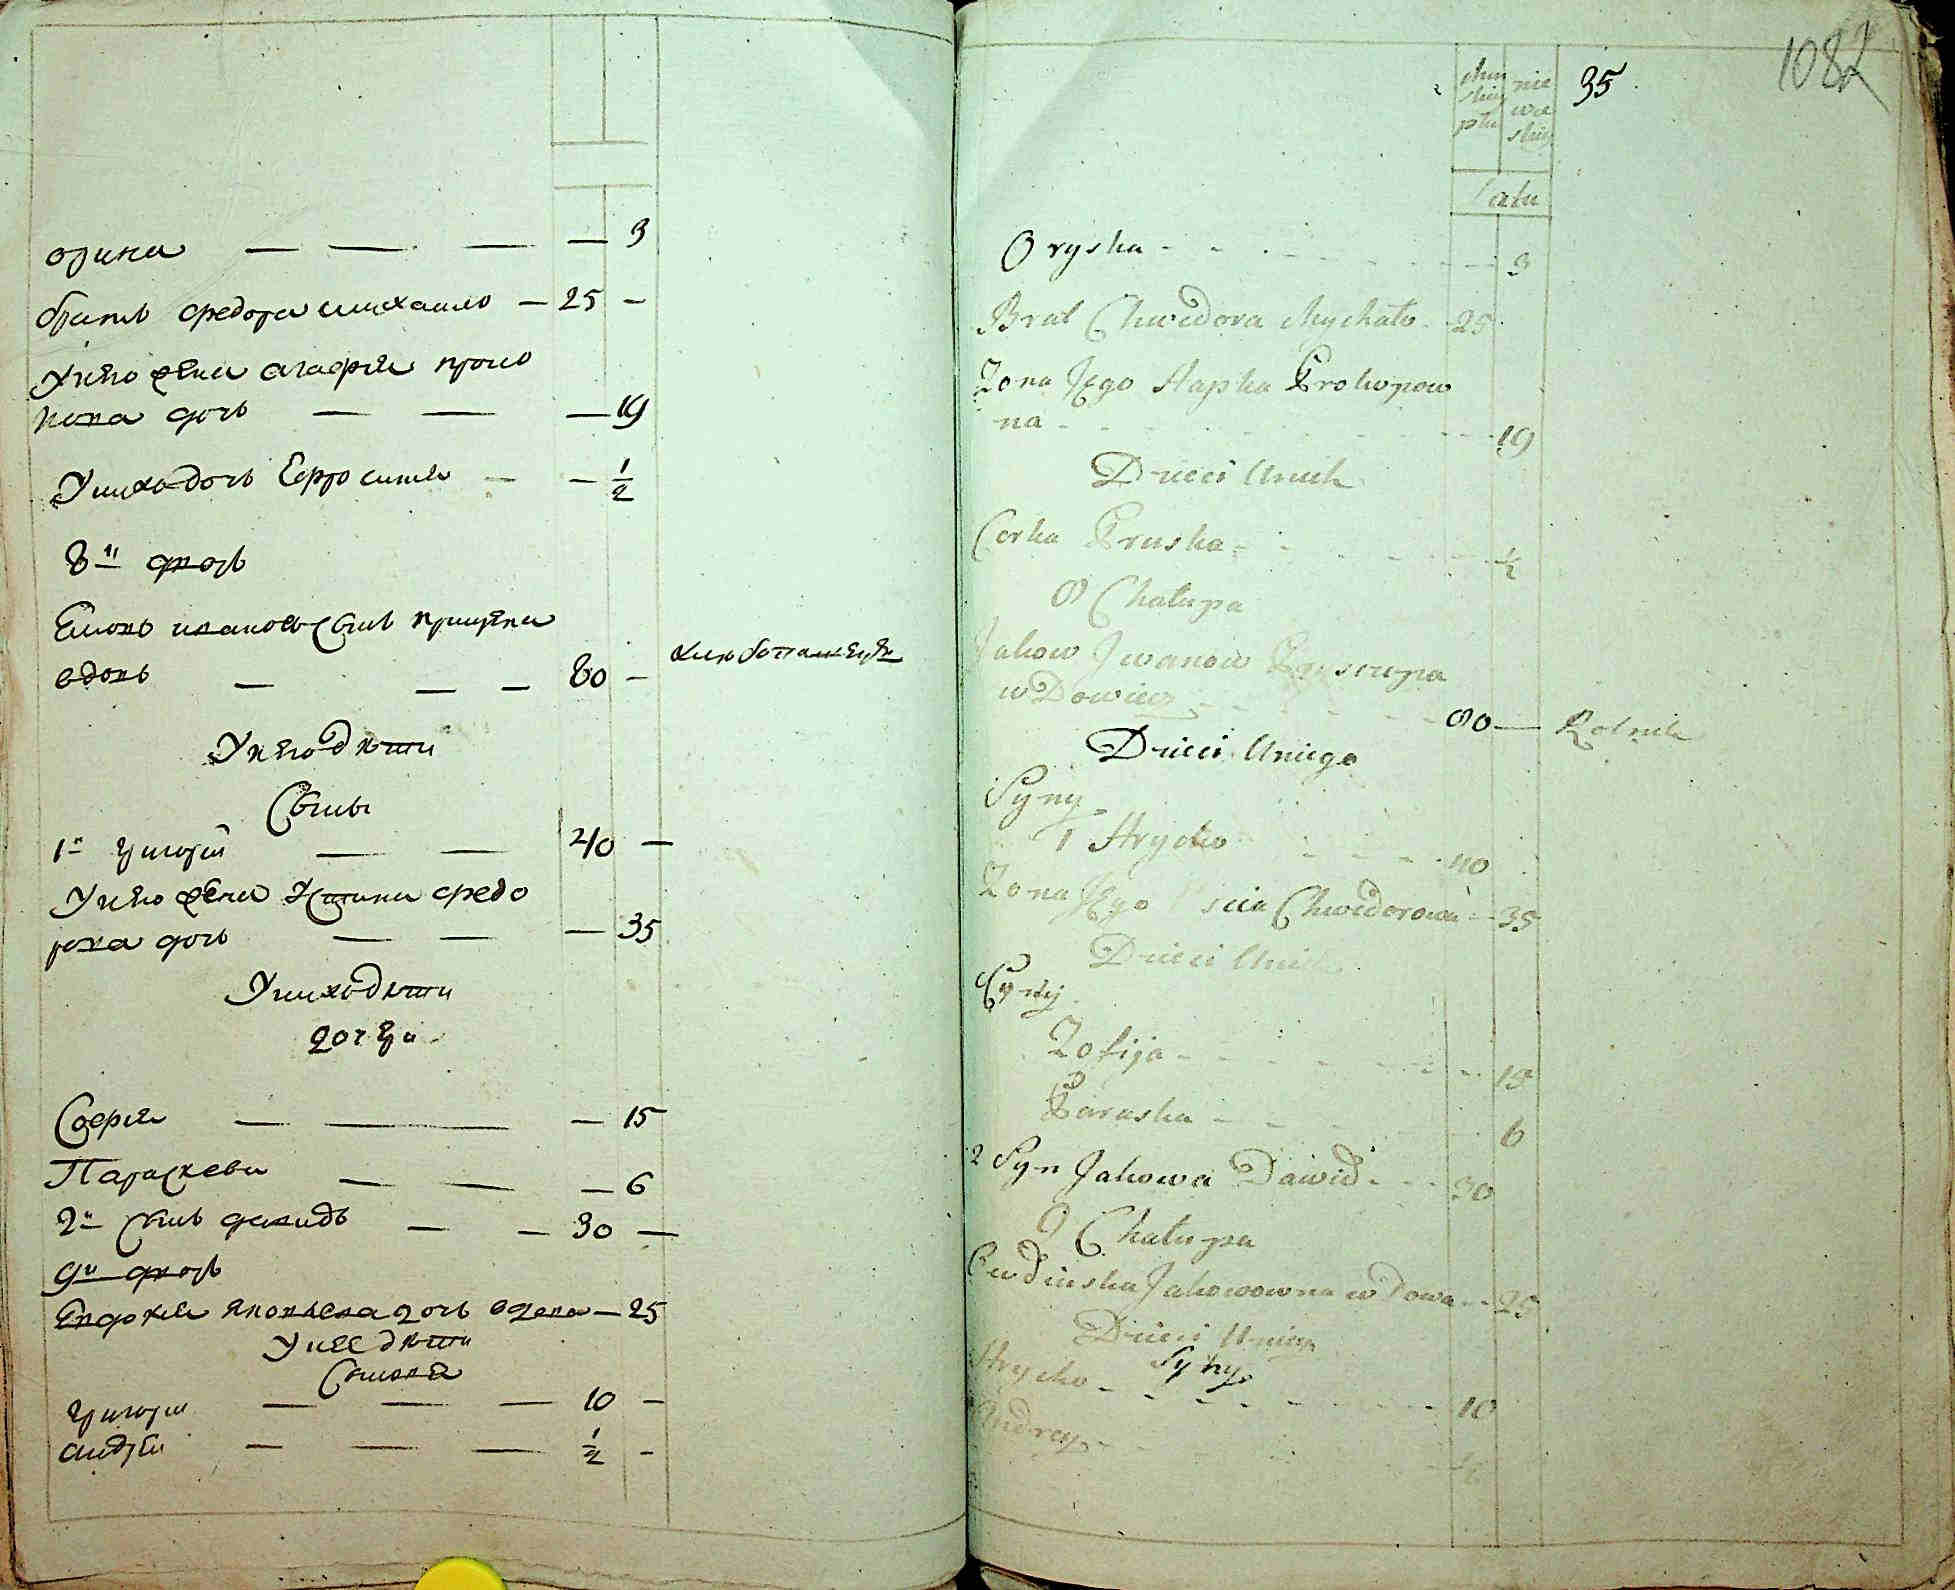 орина — — — — 3
братъ федора михаило — 25 —
У него жена агафия проко
пова дочь — — — 19
У нихъ дочь Ефросиния — — 1/2
8й дворъ
Яковъ ивановъ сынъ прищепа
вдовъ — — — 80 — хлебопашецъ
У него дети
Сыны
1й григорий — — 40 —
У него жена Устина федо
рова дочь — — — 35
У нихъ дети
дочери
София — — — 15
Параскева — — — 6
2й сынъ давидъ — — 30 —
9й дворъ
Евдокия яковлева дочь вдова — 25
У нее дети
Сыновя
григории — — — 10 —
андреи — — — 1/2 —
1082
35
Latu
Oryska 3
Brat Chwedora Mychało 25
Zona Jego Hapka Prokopow
na 19
Dzieci Unich
Corka Pruska 1/2
8 Chałupa
Jakow Jwanow Pryszczepa
wDowiec 80 — Rolnik
Dzieci Uniego
Syny
1 Hrycko 40
Zona Jego Chwedorowa 35
Dzieci Unich
Zofija 15
Paraska 6
2 Syn Jakowa Dawid 30
9 Chałupa
Jakowowna wDowa 25
Dzieci Uniey
Syny
Hrycko 10
Andrey 1/2